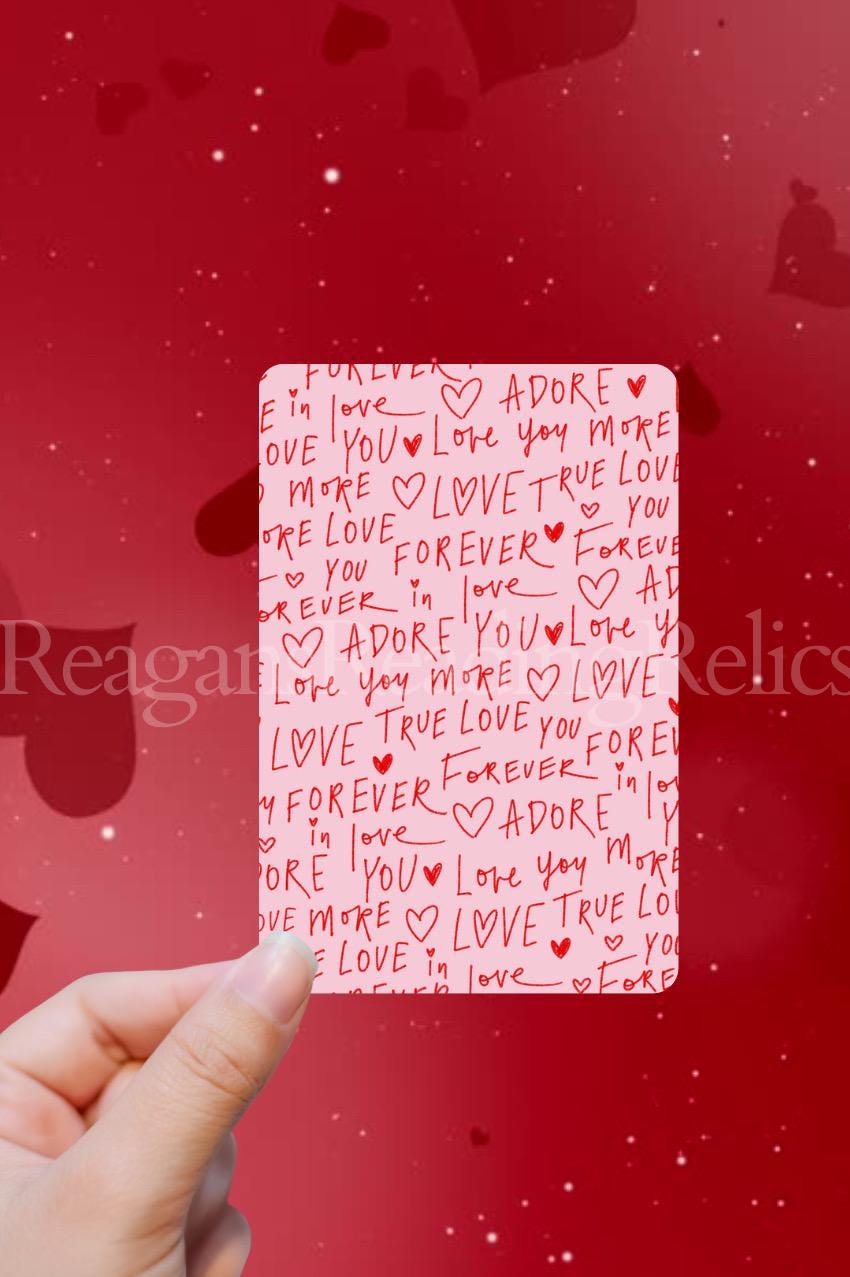 FOREVER
in love ADORE
YOU Love you MORE
MORE LOVE TRUE LOVE
YOU
LOVE FOREVER
YOU
FOREVER in love
ADORE YOU Love
ReaganReadingRelics
Love you MORE LOVE
LOVE TRUE LOVE YOU
FOREVER FOREVER
in love ADORE
YOU Love you MORE
MORE LOVE TRUE
LOVE in love YOU